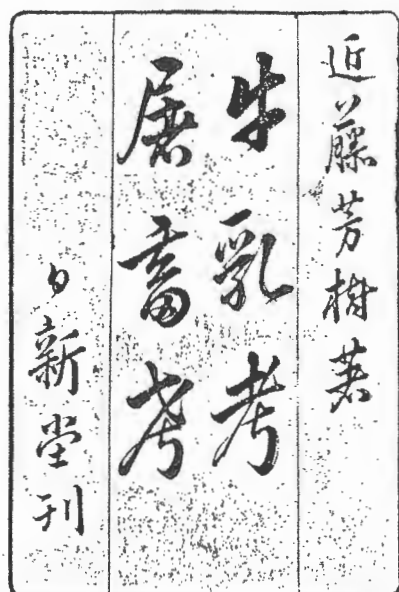 近藤芳樹著
牛乳考
屠畜考
日新堂刊